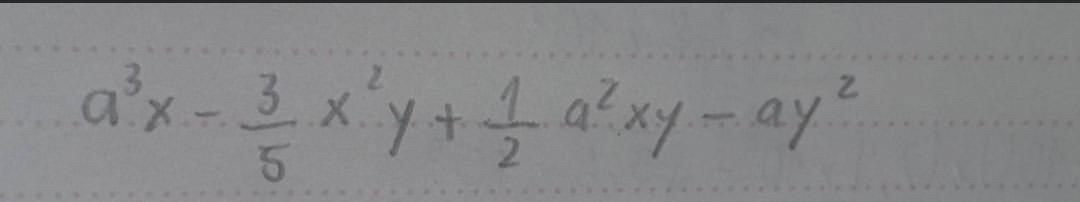 a³x - 3/5 x²y + 1/2 a²xy - ay²